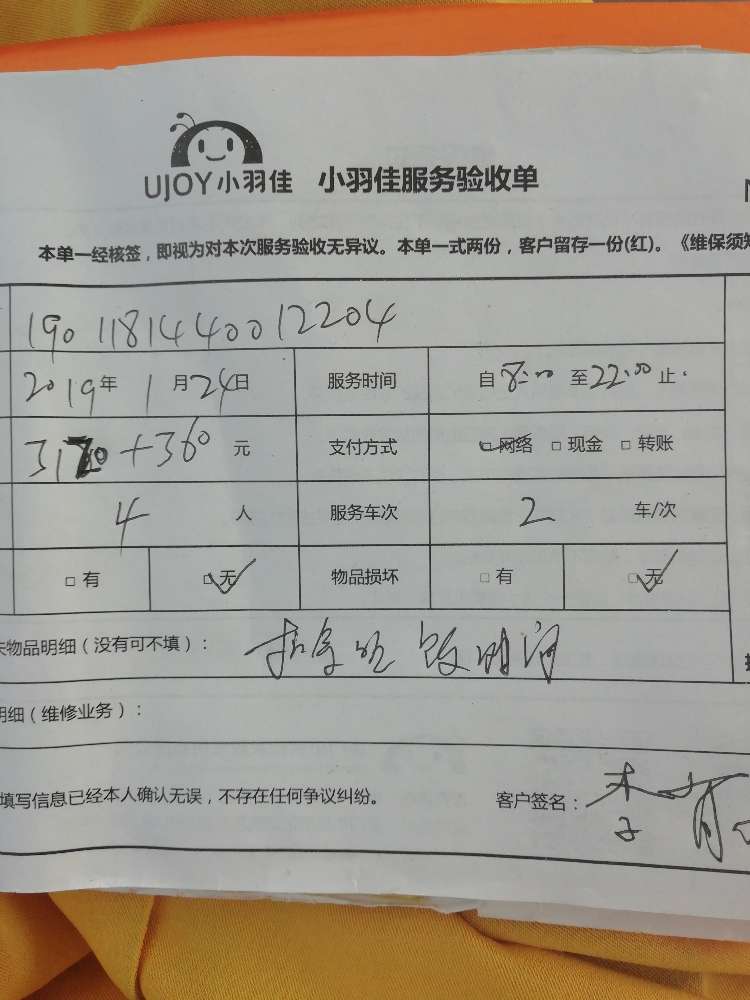 UJOY小羽佳 小羽佳服务验收单
本单一经核签，即视为对本次服务验收无异议。本单一式两份，客户留存一份(红)。《维保须知
1901181440012204
2019年1月24日 服务时间 自8:00至22:00止
+360元 支付方式 □网络 □现金 □转账
4人 服务车次 2车/次
□有 □无 物品损坏 □有 □无
物品明细（没有可不填）：
明细（维修业务）：
填写信息已经本人确认无误，不存在任何争议纠纷。 客户签名： 李